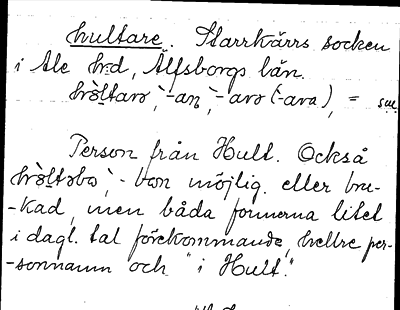 hultare. Starrkärrs socken
i Ale hrd, Älfsborgs län.
-an, -arə (-ara), =
Person från Hult. Också
-bon möjlig eller bru-
-kad, men båda formerna litet
i dagl. tal förekommande, hellre per-
-sonnamn och "i Hult."